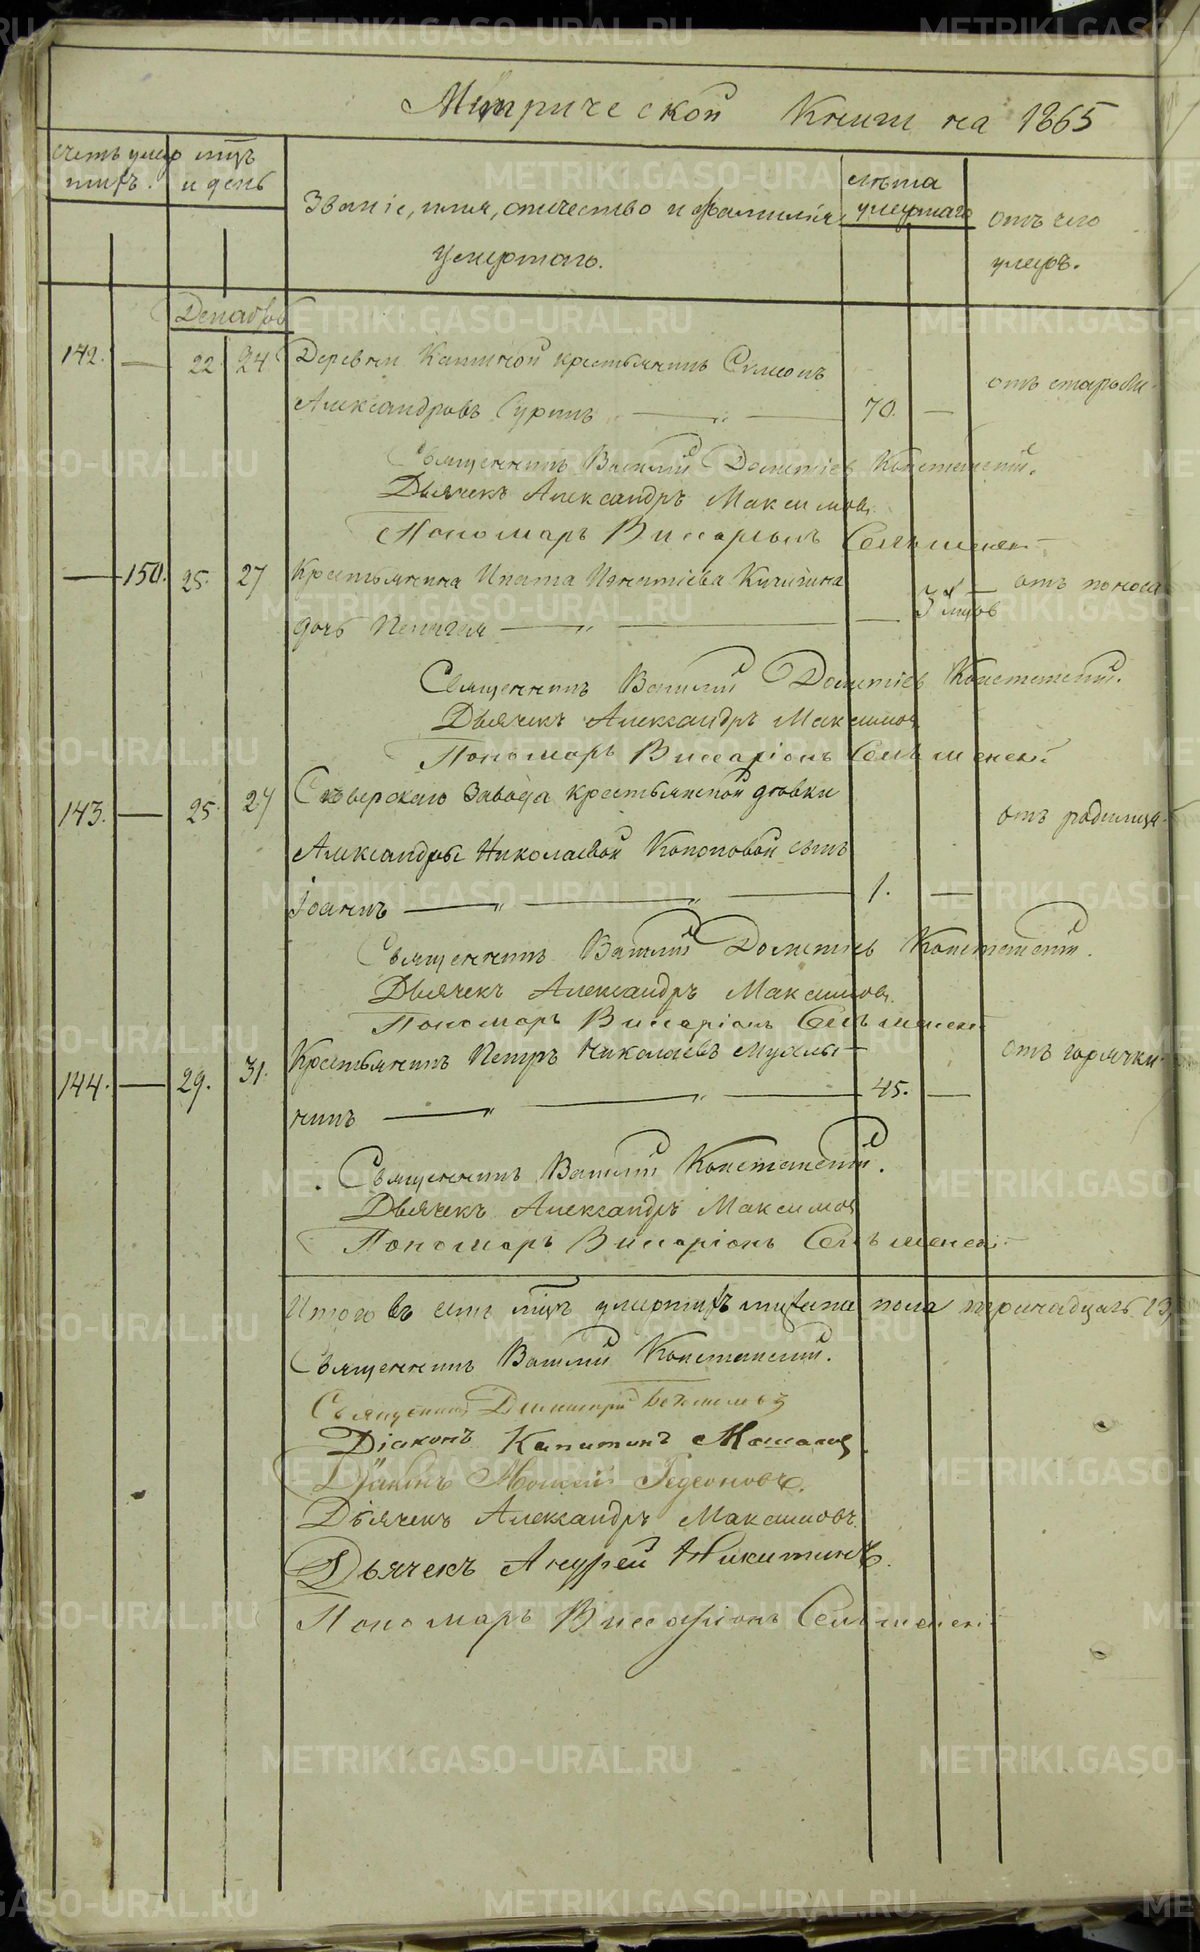 Метрической Книги на 1865
Счетъ умер
шихъ.
мцъ
и день
Званіе, имя, отчество и фамилія
умершаго.
лѣта
умершаго
отъ чего
умеръ.
Декабрь
142. — 22 24 Деревни крестьянинъ Симеонъ
Александровъ Суринъ — „ — 70. — отъ старости
Священникъ Василій Дометіев Константи
Дьячекъ Александръ Максимов
Пономарь Виссаріонъ
— 150. 25. 27 Крестьянина Ипата Игнатіева Кичигина
дочь Пелагея — „ — 3 мцов отъ поноса
Священникъ Василій Дометіев
Дьячекъ Александръ Максимов
Пономарь Виссаріонъ
143. — 25. 27 Сѣверскаго Завода крестьянской дѣвки
Александры Николаевой Кононовой сынъ
Іоаннъ — „ — „ — 1. — отъ родимца
Священникъ Василій
Дьячекъ Александръ Максимов
Пономарь Виссаріонъ
144. — 29. 31. Крестьянинъ Петръ Николаевъ Мухлы-
нинъ — „ — „ — 45. — отъ горячки
Священникъ Василій
Дьячекъ Александръ Максимов
Пономарь Виссаріонъ
Итого въ семъ мцѣ умершихъ мужеска пола тринадцать 13,
Священникъ Василій
Священникъ Димитрій
Діаконъ Капитонъ
Діаконъ Моисей Гедеоновъ.
Дьячекъ Александръ Максимовъ
Дьячекъ Андрей Никитинъ.
Пономарь Виссаріонъ
METRIKI.GASO-URAL.RU